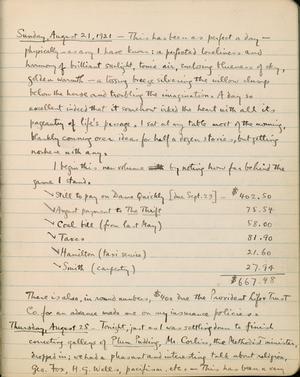 Sunday, August 21, 1921 - This has been as perfect a day -
physically as any I have known: a perfected loveliness and
harmony of brilliant sunlight, tonic air, enclosing blueness of sky,
golden warmth - a tossing breeze silvering the willow clumps
below the house and troubling the imagination. A day so
excellent indeed that it somehow irked the heart with all its
pageantry of life's passage. I sat at my table most of the morning,
blankly conning over ideas for half a dozen stories, but getting
nowhere with any.
I begin this new volume by noting how far behind the
game I stand.
Still to pay on Daws Quickly [Due Sept. 23] - $402.50
August payment to The Thrift 75.54
Coal bill (from last May) 58.00
Taxes 81.90
Hamilton (taxi service) 21.60
Smith (carpentry) 27.94
$667.48
There is also, in round numbers, $400 due the Provident Life & Trust
Co. for an advance made me on my insurance policies
Thursday, August 25 - Tonight, just as I was settling down to finish
correcting galleys of Plum Pudding, Mr. Corliss, the Methodist minister,
dropped in; we had a pleasant and interesting talk about religion,
Geo. Fox, H. G. Wells, pacifism, etc. - This has been a very